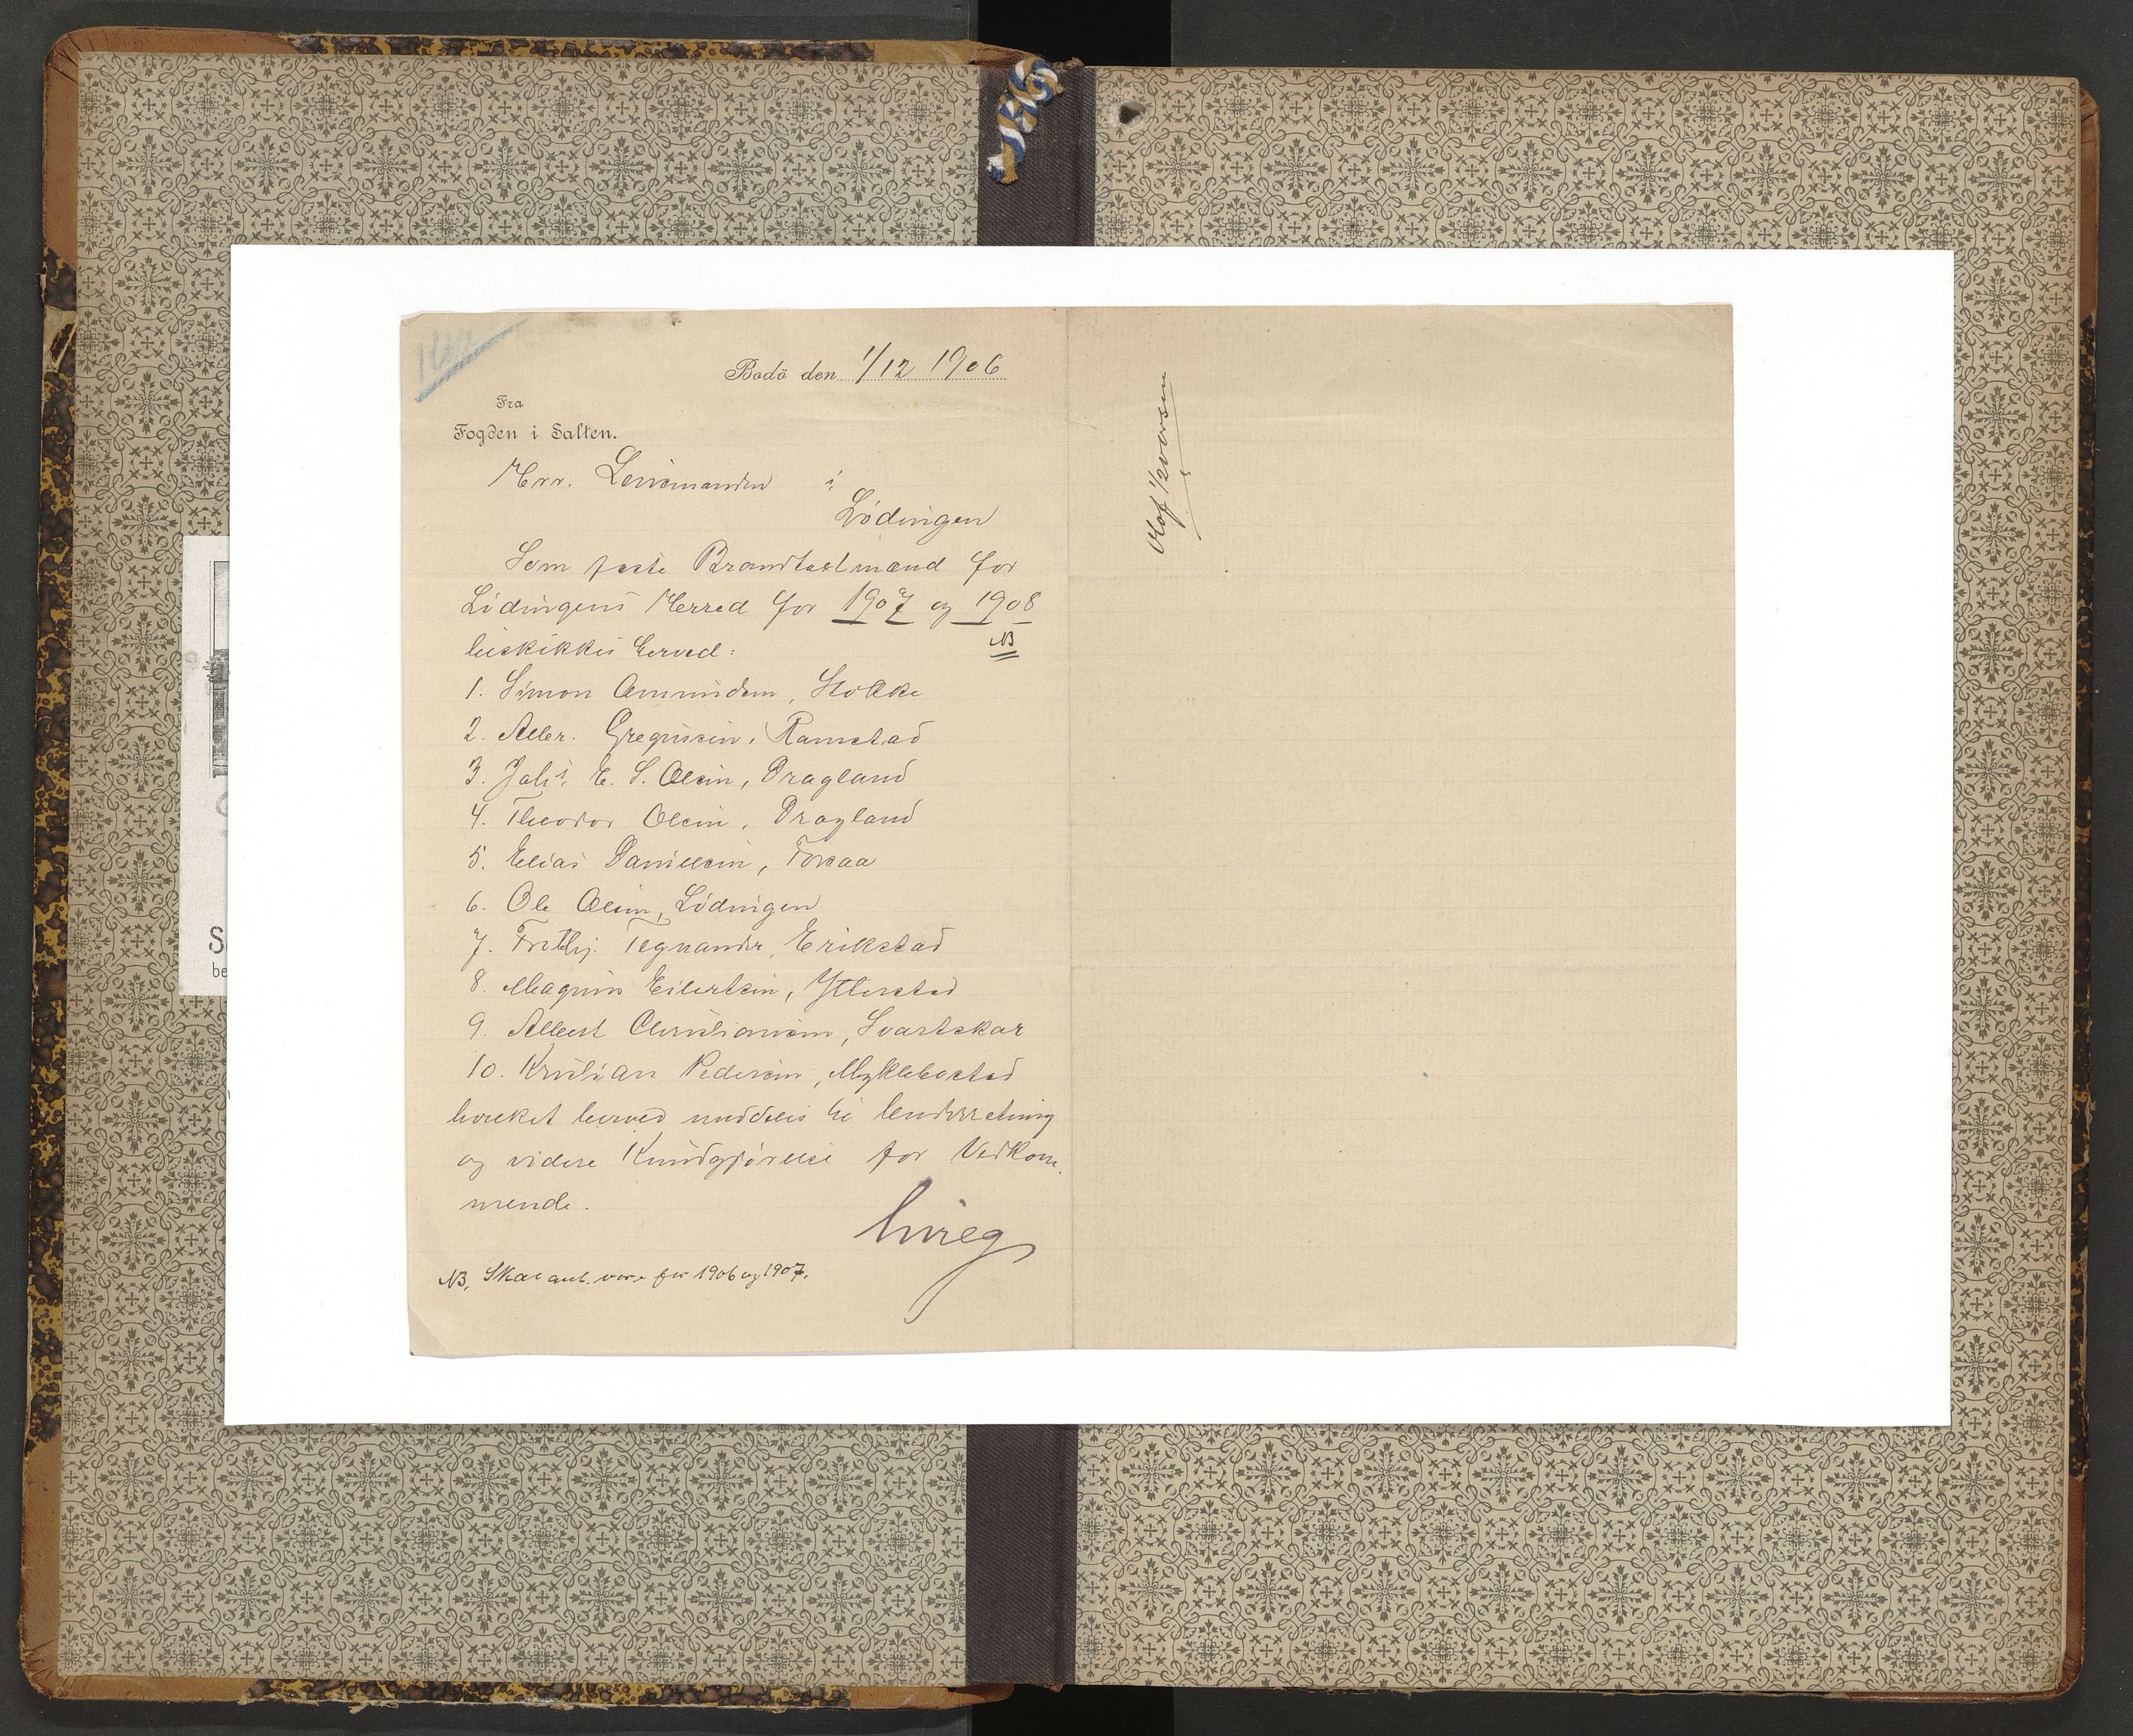 Bodö den 1/12 1906
Fra
Fogden i Salten.
Herr. Lensmanden i
Lödingen
Som faste Brandtaxtmænd for
Lödingens Herred for 1907 og 1908
NB
beskikkes herved:
1. Simon Amundsen, Stokke
2. Alber. Gregusen, Ramstad
3. Johs. E. S. Olsen, Dragland
4. Theodor Olsen, Dragland
5. Elias Danielsen, Forsaa
6. Ole Olsen, Lödingen
7. Frithj. Tegnander, Erikstad
8. Magnus Eilertsen, Ytterstad
9. Albert Christiansen, Svartskar
10. Kristian Pedersen, Myklebostad
hvilket herved meddeles til Underretning
og videre Kundgjörelse for Vedkom-
mende.
NB. Skal ant. være for 1906 og 1907.
Olaf Iversen
S
be